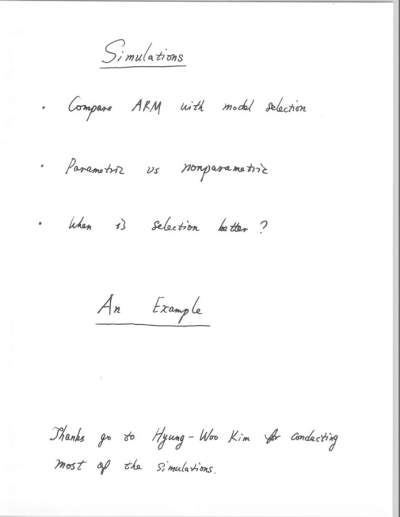 Simulations
• Compare ARM with model selection
• Parametric vs nonparametric
• When is selection better?
An Example
Thanks go to Hyung-Woo Kim for conducting
most of the simulations.